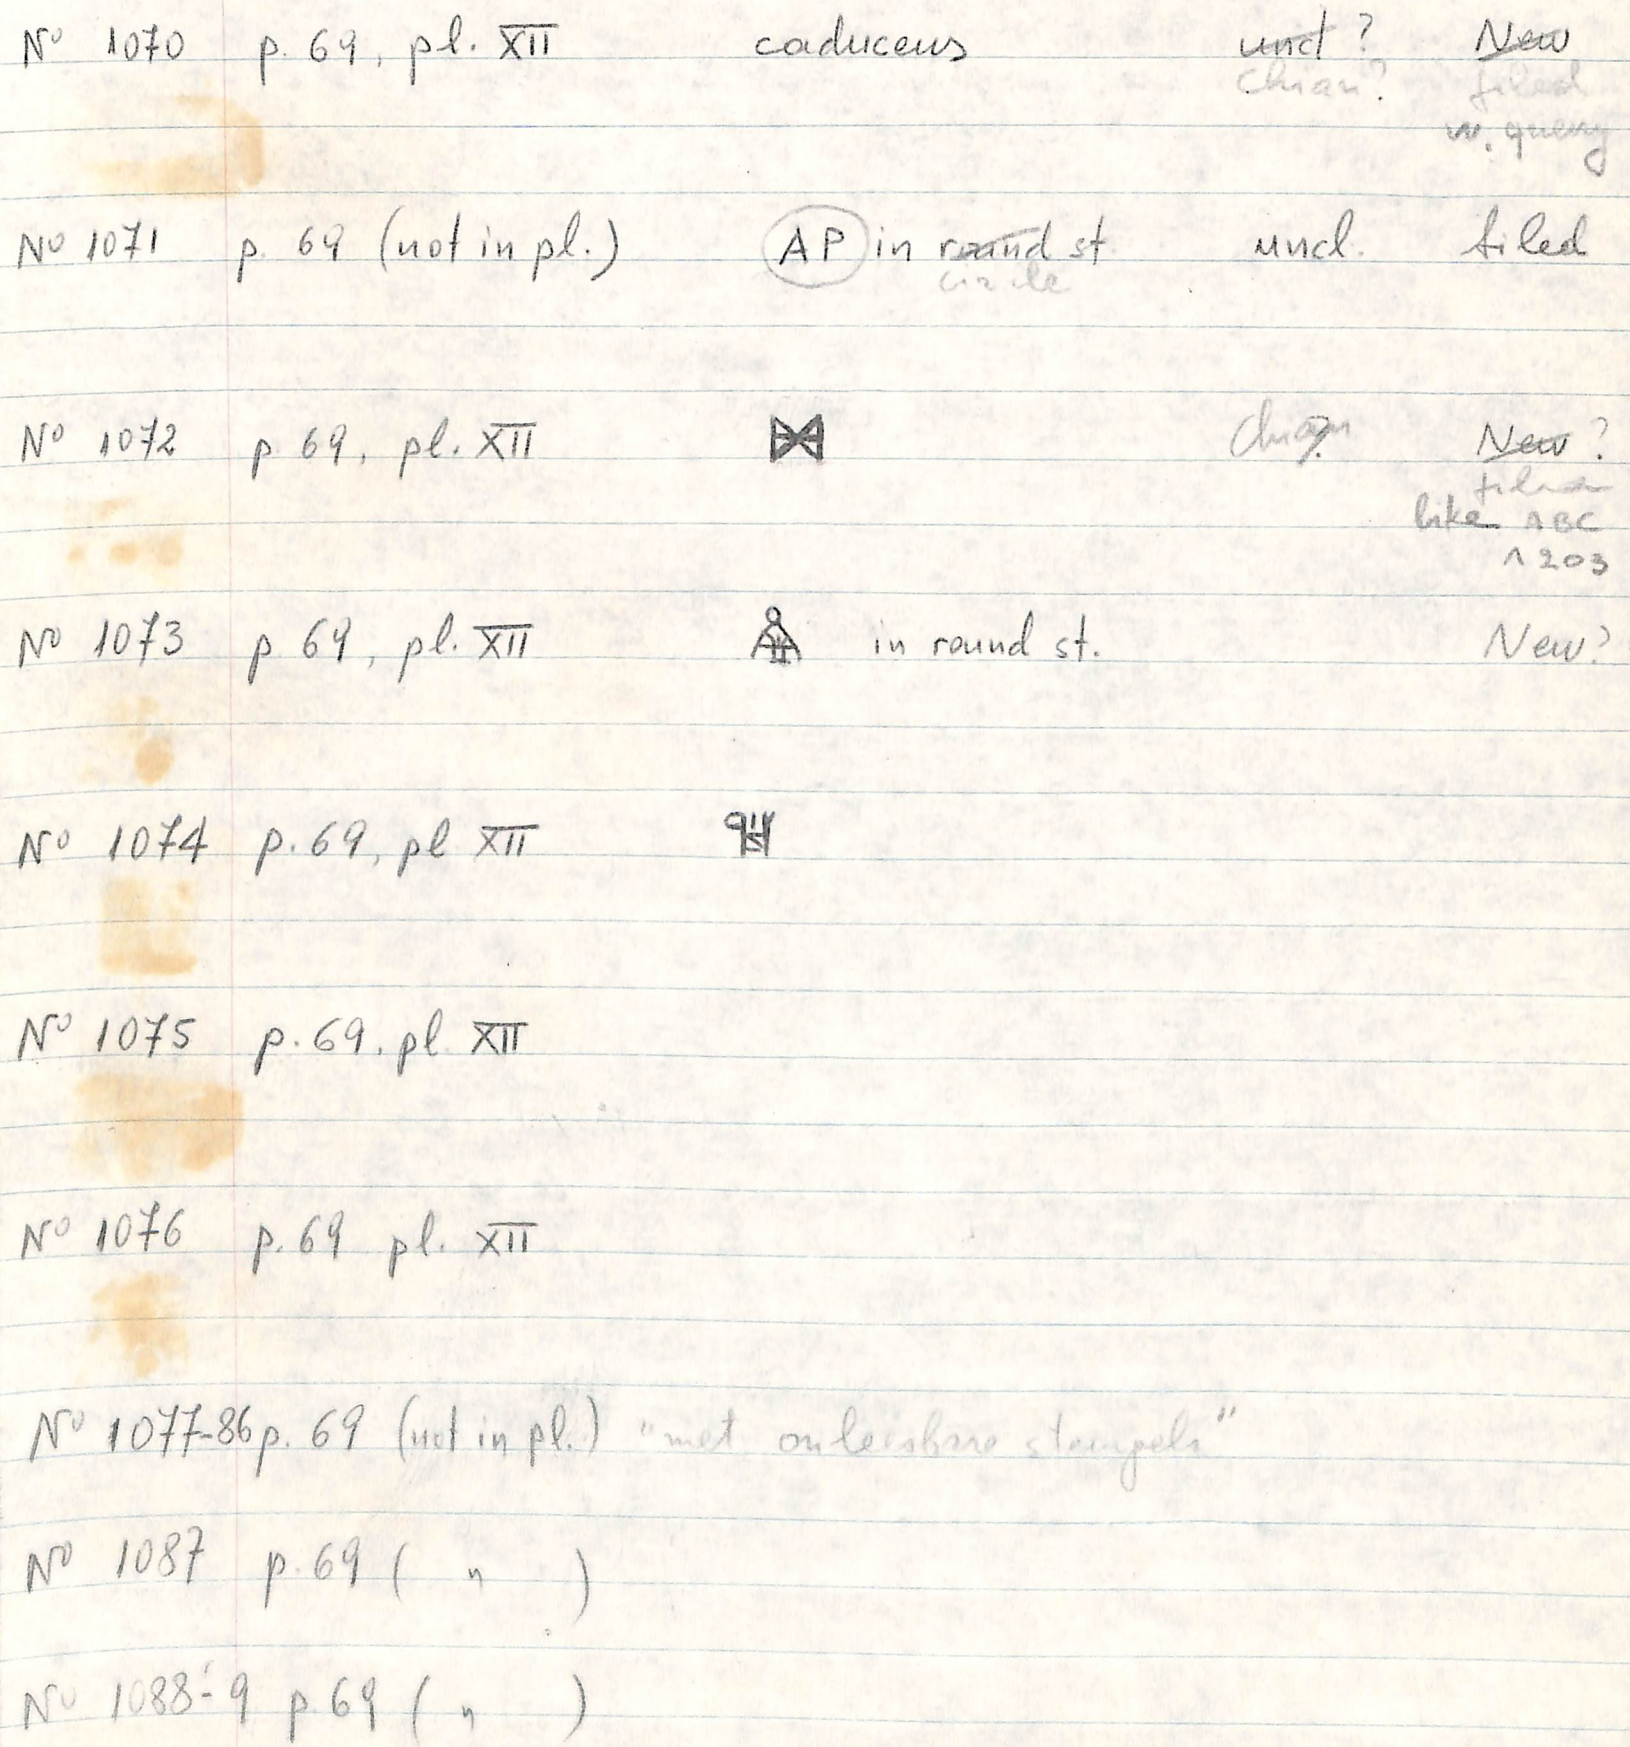 No 1070 p. 69, pl. XII caduceus uncl ? New
chian? filed
w. query
No 1071 p. 69 (not in pl.) AP in round st. uncl. filed
circle
No 1072 p. 69, pl. XII chian ? New ?
filed
like ABC
1203
No 1073 p 69, pl. XII in round st. New?
No 1074 p. 69, pl XII
No 1075 p. 69, pl XII
No 1076 p. 69 pl. XII
No 1077-86 p. 69 (not in pl.) "met onleesbare stempels"
No 1087 p. 69 ( " )
No 1088-9 p. 69 ( " )